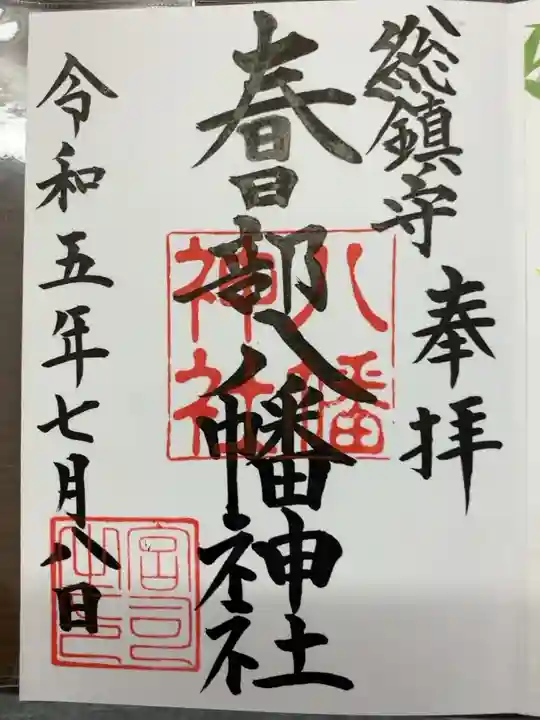 奉拝
総鎮守
春日部八幡神社
八幡
神社
令和五年七月八日
宮司
之印